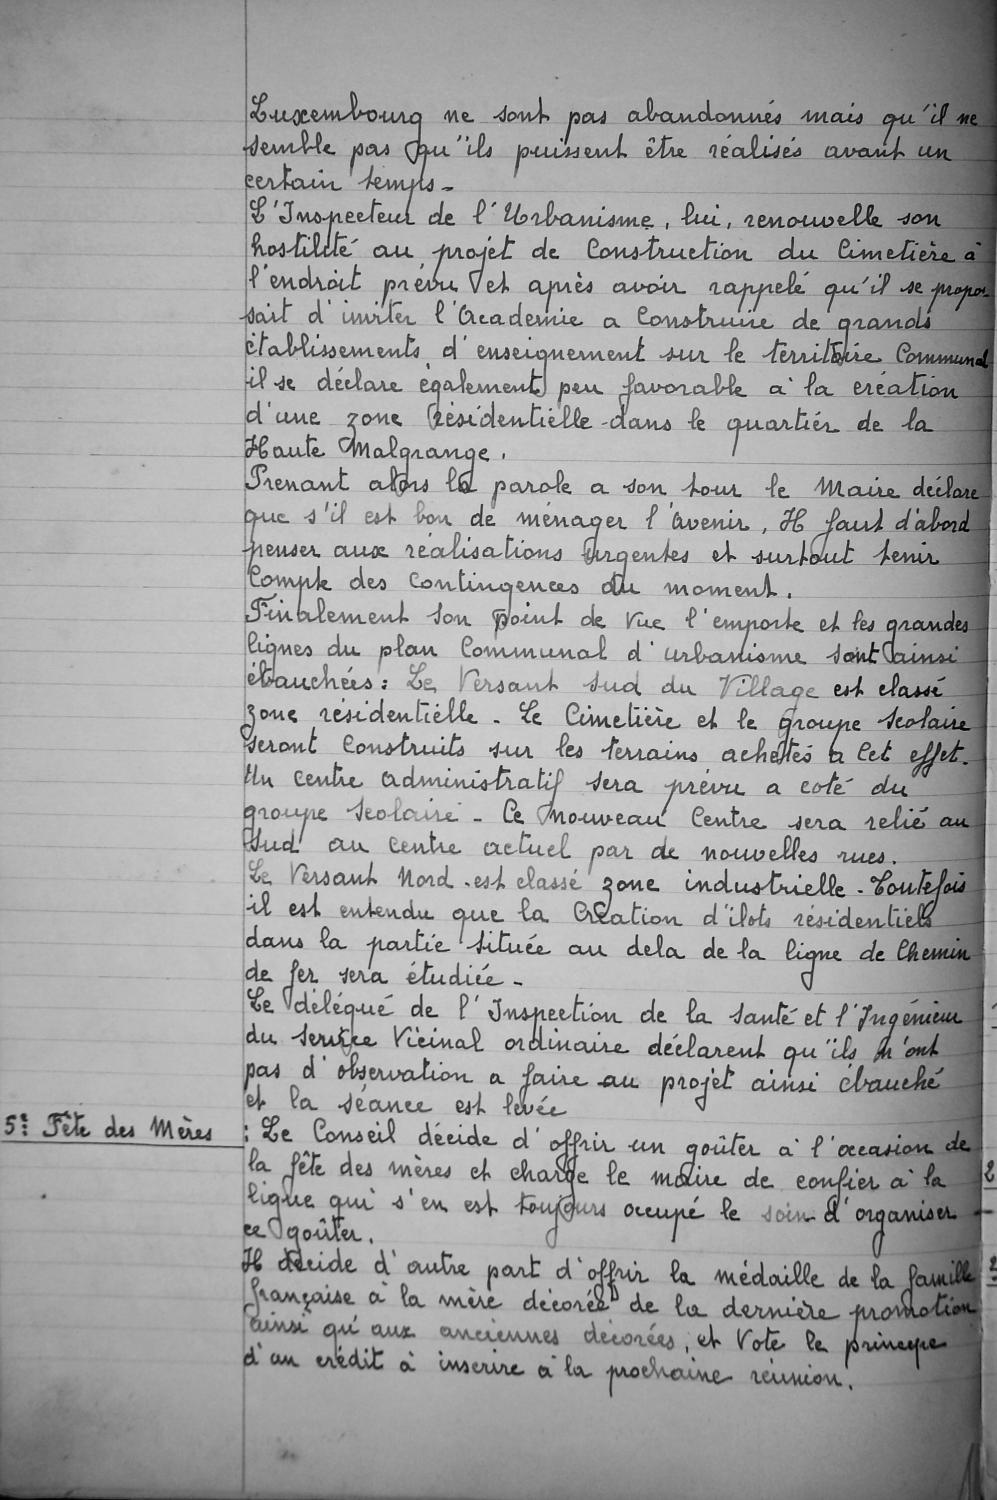 Luxembourg ne sont pas abandonnés mais qu'il ne
semble pas qu'ils puissent être réalisés avant un
certain temps -
L'Inspecteur de l'Urbanisme, lui, renouvelle son
hostilité au projet de Construction du Cimetière à
l'endroit prévu et après avoir rappelé qu'il se propo
sait d'inviter l'Academie a Construire de grands
établissements d'enseignement sur le territoire Communal
il se déclare également peu favorable à la création
d'une zone résidentielle dans le quartier de la
Haute Malgrange.
Prenant alors la parole a son tour le Maire déclare
que s'il est bon de ménager l'avenir, Il faut d'abord
penser aux réalisations urgentes et surtout tenir
Compte des Contingences du moment.
Finalement son point de vue l'emporte et les grandes
lignes du plan Communal d'urbanisme sont ainsi
ébauchées : Le Versant Sud du Village est classé
zone résidentielle - Le Cimetière et le groupe Scolaire
seront Construits sur les terrains achetés a Cet effet.
Un centre administratif sera prévu a coté du
groupe Scolaire - Ce nouveau Centre sera relié au
Sud au centre actuel par de nouvelles rues.
Le Versant Nord est classé zone industrielle - Toutefois
il est entendu que la Création d'ilots résidentiels
dans la partie Située au dela de la ligne de Chemin
de fer sera étudiée -
Le délégué de l'Inspection de la Santé et l'Ingénieur
du Service Vicinal ordinaire déclarent qu'ils n'ont
pas d'observation a faire au projet ainsi ébauché
et la séance est levée
5° : Fête des Mères : Le Conseil décide d'offrir un goûter à l'occasion de
la fête des mères et charge le maire de confier à la
ligue qui s'en est toujours occupé le soin d'organiser
ce goûter.
Il décide d'autre part d'offrir la médaille de la famille
française à la mère décorée de la dernière promotion
ainsi qu'aux anciennes décorées, et Vote le principe
d'un crédit à inscrire à la prochaine réunion.